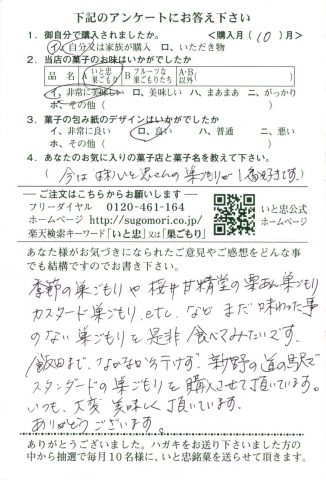 下記のアンケートにお答え下さい
1．御自分で購入されましたか。 <購入月（10）月>
イ、自分又は家族が購入 ロ、いただき物
2．当店の菓子のお味はいかがでしたか
品名 A いと忠巣ごもり B フルーツな巣ごもりたち A・B以外（ ）
イ、非常に美味しい ロ、美味しい ハ、まあまあ ニ、がっかり
ホ、その他（ ）
3．菓子の包み紙のデザインはいかがでしたか
イ、非常に良い ロ、良い ハ、普通 ニ、悪い
ホ、その他（ ）
4．あなたのお気に入りの菓子店と菓子名を教えて下さい。
（今はいと忠さんの巣ごもりが1番好きです）
ご注文はこちらからお願いします
フリーダイヤル 0120-461-164
ホームページ http://sugomori.co.jp/
楽天検索キーワード「いと忠」又は「巣ごもり」
いと忠公式
ホームページ
あなた様がお気づきになられたご意見やご感想をどんな事
でも結構ですのでお書き下さい。
季節の巣ごもりや桜井甘精堂の栗あん巣ごもり
カスタード巣ごもり、etc. などまだ味わった事
のない巣ごもりを是非食べてみたいです。
飯田まで、なかなか行けず、新野の道の駅で
スタンダードの巣ごもりを購入させて頂いています。
いつも、大変美味しく頂いています。
ありがとうございます。
ありがとうございました。ハガキをお送り下さいました方の
中から抽選で毎月10名様に、いと忠銘菓を送らせて頂きます。